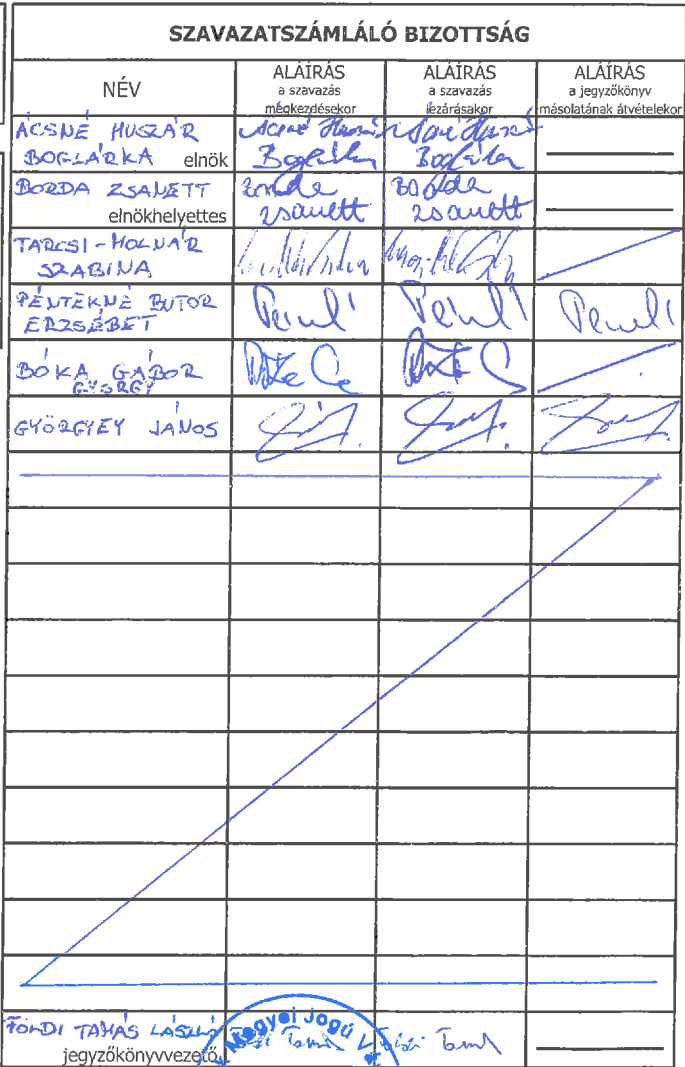 SZAVAZATSZÁMLÁLÓ BIZOTTSÁG
NÉV
ALÁÍRÁS
a szavazás
megkezdésekor
ALÁÍRÁS
a szavazás
lezárásakor
ALÁÍRÁS
a jegyzőkönyv
másolatának átvételekor
ÁCSNÉ HUSZÁR
BOGLÁRKA elnök
BORDA ZSANETT
elnökhelyettes
Borda
Zsanett
Borda
Zsanett
TARCSI-MOLNÁR
SZABINA
PÉNTEKNÉ BUTOR
ERZSÉBET
BÓKA GÁBOR
GYÖRGY
GYÖRGYEY JÁNOS
FÖLDI TAMÁS LÁSZLÓ
jegyzőkönyvvezető
Megyei Jogú